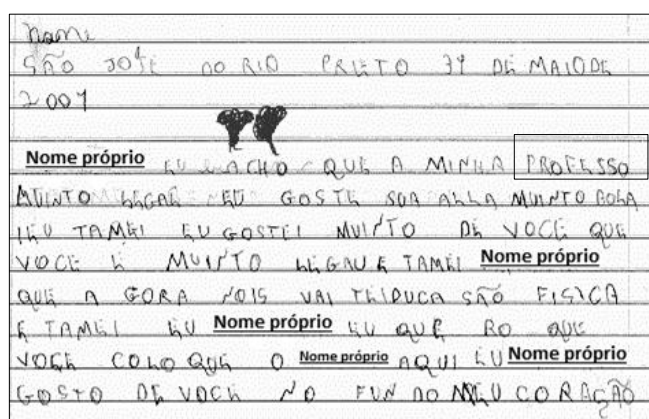 nome
SÃO JOSE DO RIO PRLETO 31 DE MAIODE
2001
Nome próprio EU ACHO QUE A MINHA PROFESSO
MUINTO LEGAL EU GOSTE SUA ALLA MUINTO BOLA
IEU TAMEI EU GOSTEI MUINTO DE VOCE QUE
VOCE E MUINTO LEGAU E TAMEI Nome próprio
QUE A GORA NOIS VAI TEIDUCA SÃO FISICA
E TAMEI EU Nome próprio EU QUE RO QUE
VOCE COLO QUE O Nome próprio AQUI EU Nome próprio
GOSTO DE VOCE NO FUN DO MEU CORAÇÃO